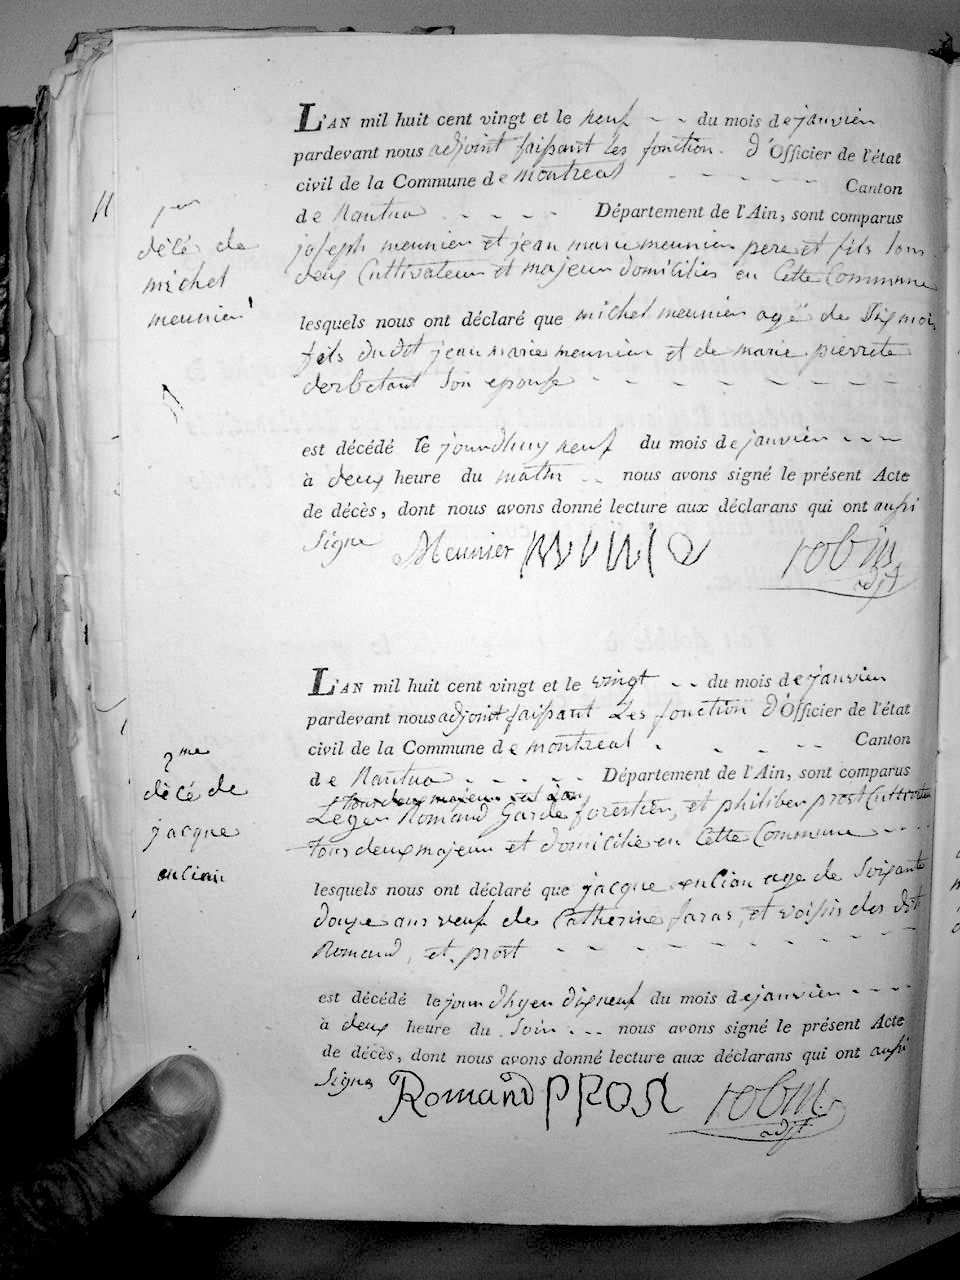 L'AN mil huit cent vingt et le neuf - - du mois de janvien
pardevant nous adjoint faissant les fonction. d'Officier de l'état
civil de la Commune de montreal - - - - - - Canton
de Nantua - - - - - Département de l'Ain, sont comparus
joseph meunier et jean marie meunier pere et fils tous
deux Cultivateur et majeur domiciliés en Cette Commune
lesquels nous ont déclaré que michel meunier agé de Dix mois
fils dudit jean marie meunier et de marie pierrete
derbetant son epouse - - - - - - - -
est décédé le jourdhuy neuf du mois de janvien - - -
à deux heure du matin - - nous avons signé le présent Acte
de décès, dont nous avons donné lecture aux déclarans qui ont aussi
Signe Meunier robin
adjt
11
1er
décé de
michel
meunier
L'AN mil huit cent vingt et le vingt - - du mois de janvien
pardevant nous adjoint faissant Les fonction d'Officier de l'état
civil de la Commune de montreal - - - - - Canton
de Nantua - - - - - Département de l'Ain, sont comparus
tous deux majeur
Leger Romand Garde forestier, et philiber prost Cultivateur
tous deux majeur et domicilié en Cette Commune - - - -
lesquels nous ont déclaré que jacque enCian age de Soixante
douze ans veuf de Catherine faras, et voisin des dit
Romand, et prost - - - - - - - - -
est décédé le jour dhyer dixneuf du mois de janvien - - - -
à deux heure du Soir - - - nous avons signé le présent Acte
de décès, dont nous avons donné lecture aux déclarans qui ont aussi
Signe Romand PROST robin
adjt
2me
décé de
jacque
enCian